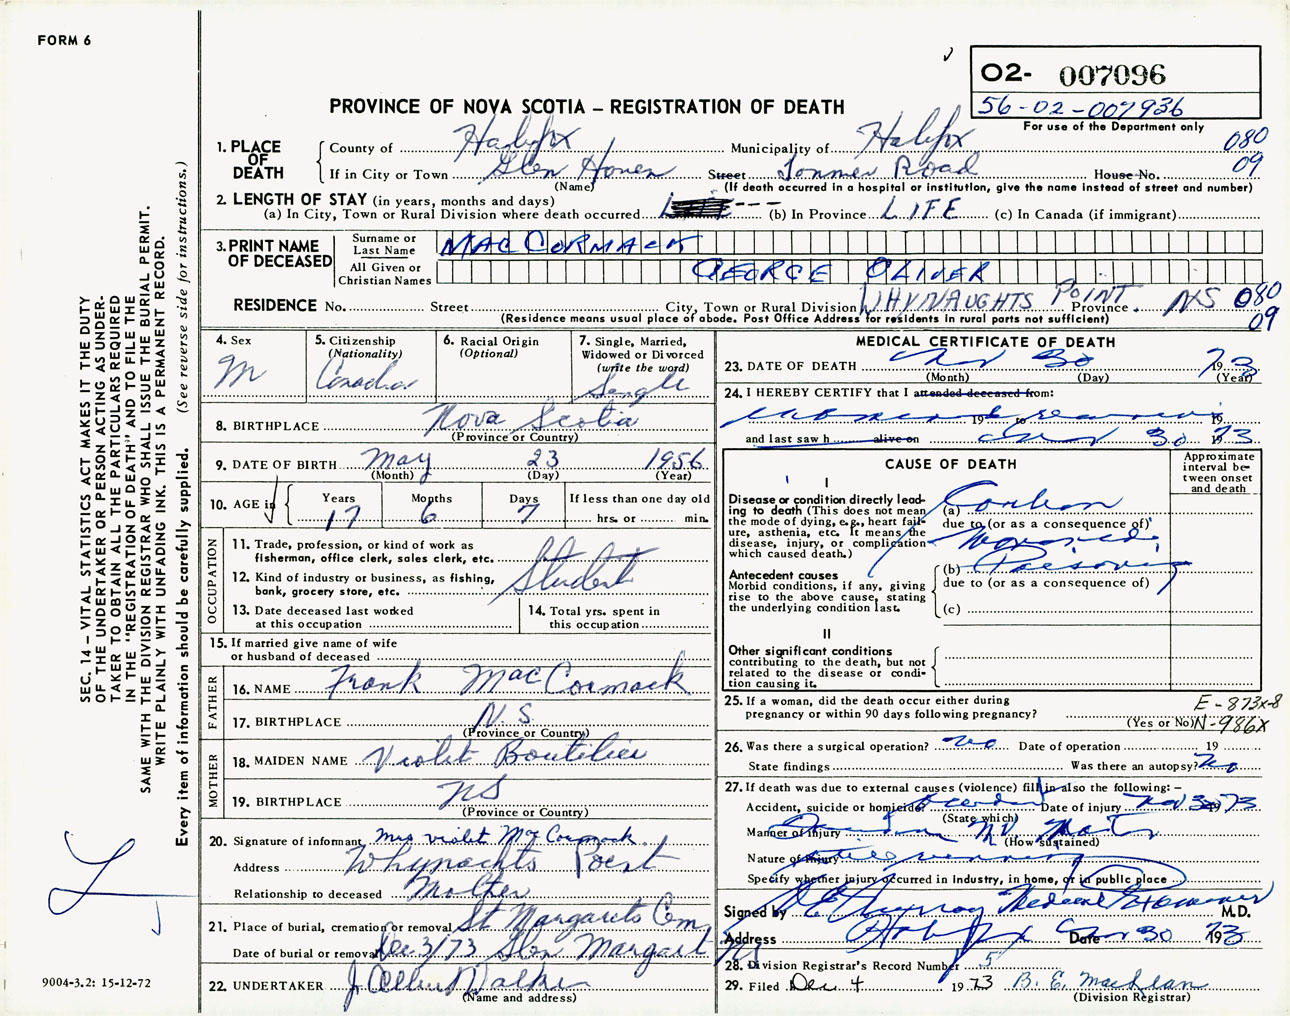 FORM 6
02- 007096
56-02-007936
For use of the Department only
PROVINCE OF NOVA SCOTIA – REGISTRATION OF DEATH
080
09
1. PLACE OF DEATH
County of Halifax Municipality of Halifax
If in City or Town Glen Haven Street Road House No.
(Name) (If death occurred in a hospital or institution, give the name instead of street and number)
2. LENGTH OF STAY (in years, months and days)
(a) In City, Town or Rural Division where death occurred (b) In Province LIFE (c) In Canada (if immigrant)
3. PRINT NAME OF DECEASED
Surname or Last Name MACCORMACK
All Given or Christian Names GEORGE OLIVER
RESIDENCE No. Street City, Town or Rural Division WHYNAUGHTS POINT Province NS 080
09
(Residence means usual place of abode. Post Office Address for residents in rural parts not sufficient)
4. Sex M
5. Citizenship (Nationality) Canadian
6. Racial Origin (Optional)
7. Single, Married, Widowed or Divorced (write the word) Single
8. BIRTHPLACE Nova Scotia
(Province or Country)
9. DATE OF BIRTH May 23 1956
(Month) (Day) (Year)
10. AGE in Years 17 Months 6 Days 7 If less than one day old hrs. or min.
OCCUPATION
11. Trade, profession, or kind of work as fisherman, office clerk, sales clerk, etc. Student
12. Kind of industry or business, as fishing, bank, grocery store, etc.
13. Date deceased last worked at this occupation
14. Total yrs. spent in this occupation
15. If married give name of wife or husband of deceased
FATHER
16. NAME Frank MacCormack
17. BIRTHPLACE N.S.
(Province or Country)
MOTHER
18. MAIDEN NAME Violet Boutilier
19. BIRTHPLACE NS
(Province or Country)
20. Signature of informant Mrs Violet MacCormack
Address Whynachts Point
Relationship to deceased Mother
21. Place of burial, cremation or removal St Margarets Cem
Date of burial or removal Dec 3/73 Glen Margaret NS
22. UNDERTAKER J. Albert Walker
(Name and address)
MEDICAL CERTIFICATE OF DEATH
23. DATE OF DEATH Nov 30 1973
(Month) (Day) (Year)
24. I HEREBY CERTIFY that I attended deceased from:
19 to 19
and last saw h alive on Nov 30 1973
CAUSE OF DEATH
Approximate interval between onset and death
I
Disease or condition directly leading to death (This does not mean the mode of dying, e.g., heart failure, asthenia, etc. It means the disease, injury, or complication which caused death.)
(a) Carbon
due to (or as a consequence of)
Monoxide
Antecedent causes
Morbid conditions, if any, giving rise to the above cause, stating the underlying condition last.
(b) Poisoning
due to (or as a consequence of)
(c)
II
Other significant conditions contributing to the death, but not related to the disease or condition causing it.
25. If a woman, did the death occur either during pregnancy or within 90 days following pregnancy?
(Yes or No)
E-873x-8
N-986X
26. Was there a surgical operation? no Date of operation 19
State findings Was there an autopsy? no
27. If death was due to external causes (violence) fill in also the following: –
Accident, suicide or homicide Accident Date of injury Nov 30 1973
(State which)
Manner of injury
(How sustained)
Nature of injury
Specify whether injury occurred in Industry, in home, or in public place
Signed by Medical Examiner M.D.
Address Halifax Date Nov 30 1973
28. Division Registrar's Record Number 5
29. Filed Dec 4 1973 B. E. MacLean
(Division Registrar)
SEC. 14 – VITAL STATISTICS ACT MAKES IT THE DUTY
OF THE UNDERTAKER OR PERSON ACTING AS UNDER-
TAKER TO OBTAIN ALL THE PARTICULARS REQUIRED
IN THE "REGISTRATION OF DEATH" AND TO FILE THE
SAME WITH THE DIVISION REGISTRAR WHO SHALL ISSUE THE BURIAL PERMIT.
WRITE PLAINLY WITH UNFADING INK. THIS IS A PERMANENT RECORD.
Every item of information should be carefully supplied. (See reverse side for instructions.)
9004-3.2: 15-12-72